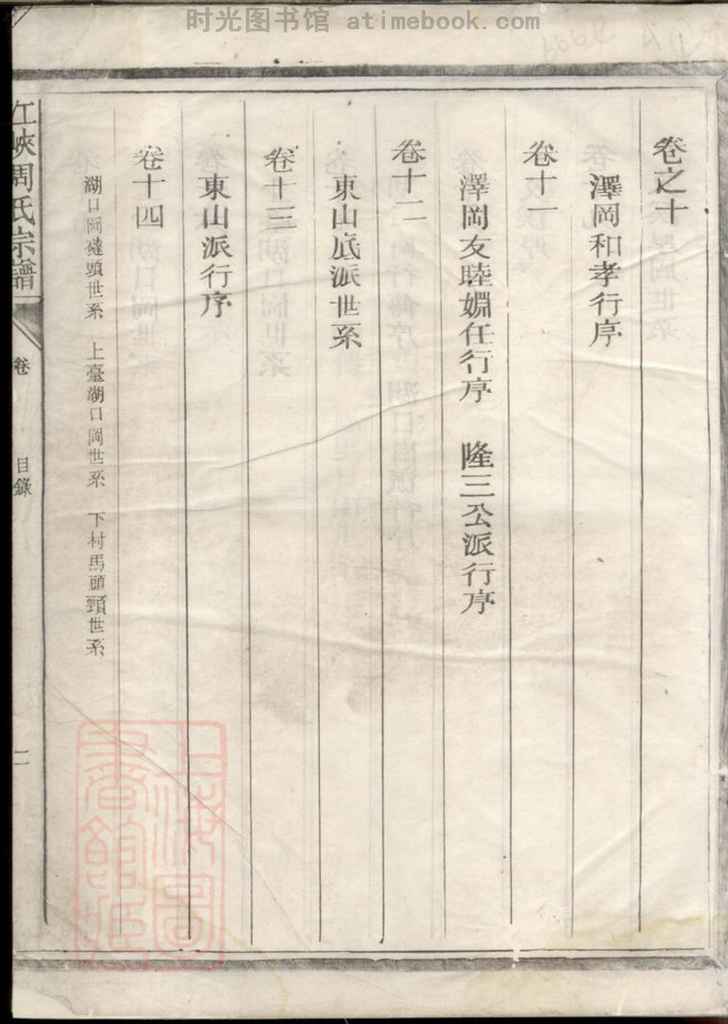 时光图书馆 atimebook.com
卷之十
澤岡和孝行序
卷十一
澤岡友睦婣任行序 隆三公派行序
卷十二
東山底派世系
卷十三
東山派行序
卷十四
湖口岡磉頭世系 上臺湖口岡世系 下村馬頭頸世系
江峽周氏宗譜
卷
目錄
二